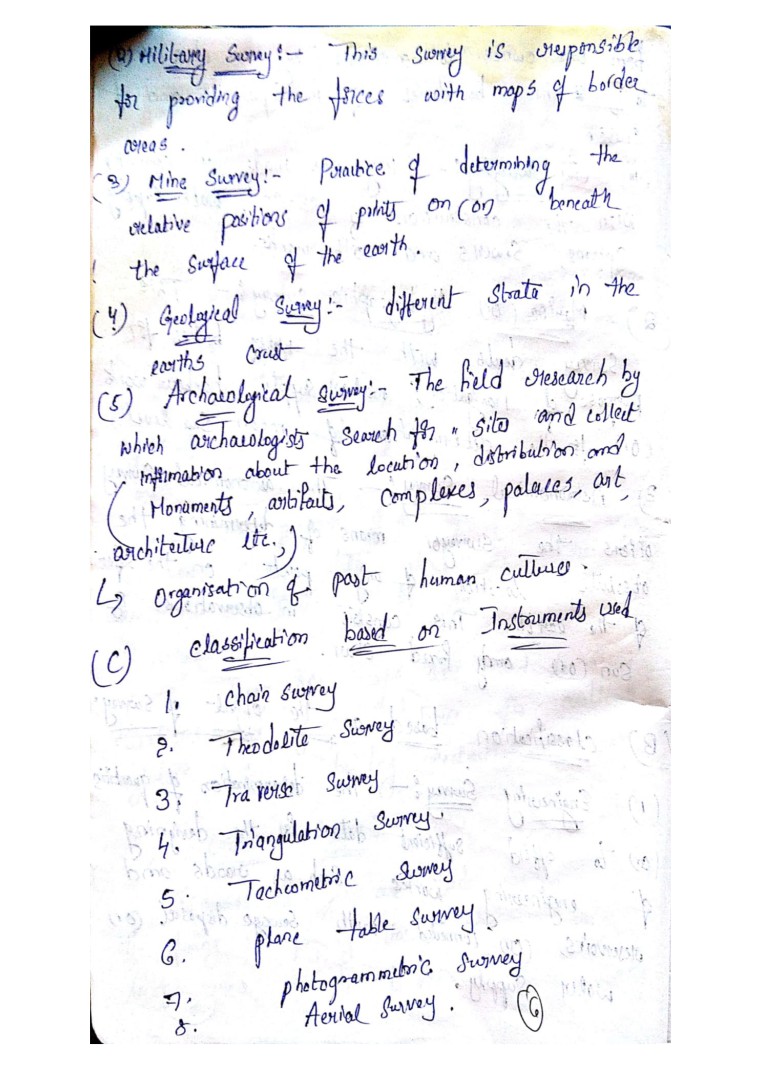 (2) Military Survey:- This survey is responsible
for providing the forces with maps of border
areas.
(3) Mine Survey:- Practice of determining the
relative positions of points on (or) beneath
the surface of the earth.
(4) Geological Survey:- different strata in the
earths crust
(5) Archaeological Survey:- The field research by
which archaeologists search for " site and collect
information about the location, distribution and
(Monuments, artifacts, complexes, palaces, art,
architecture etc.,)
↳ Organisation of past human cultures.
(C) classification based on Instruments used
1. chain survey
2. Theodolite Survey
3. Traverse Survey
4. Triangulation Survey.
5. Tacheometric Survey
6. plane table survey.
7. photogrammetric Survey
8. Aerial Survey.
6